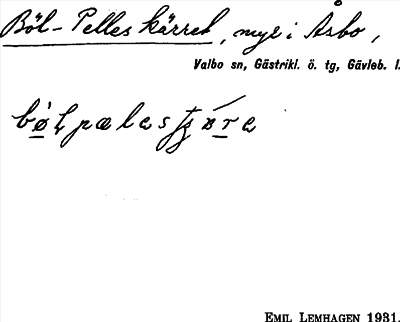 Böl-Pelles kärret, myr i Åsbo,
Valbo sn, Gästrikl. ö. tg, Gävleb. l.
EMIL LEMHAGEN 1931.